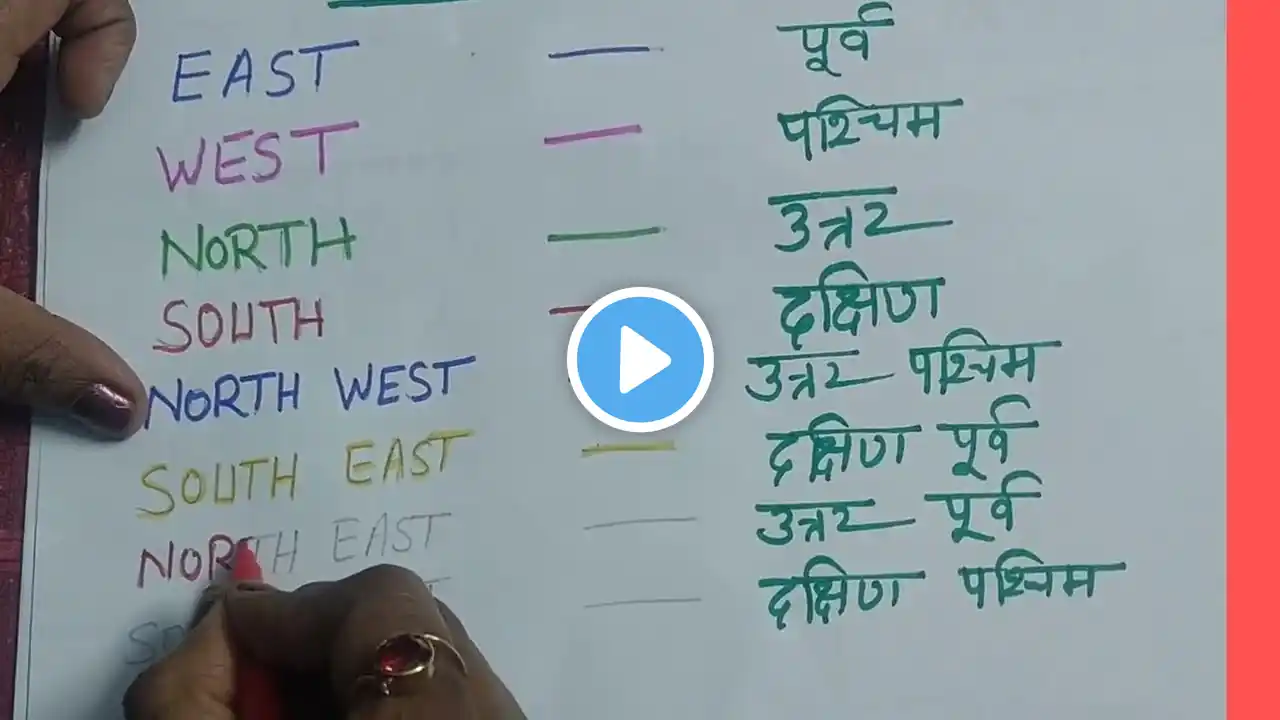 EAST — पूर्व
WEST — पश्चिम
NORTH — उत्तर
SOUTH — दक्षिण
NORTH WEST — उत्तर पश्चिम
SOUTH EAST — दक्षिण पूर्व
NORTH EAST — उत्तर पूर्व
— दक्षिण पश्चिम